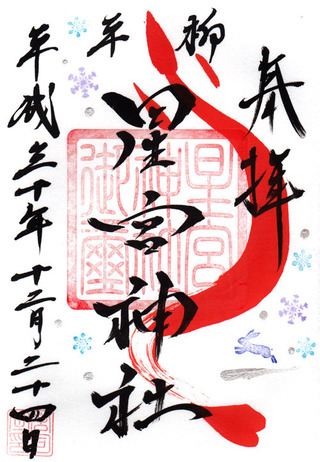 奉拝
柳
年
星宮神社
星宮
神社
御璽
平成三十年十二月二十四日